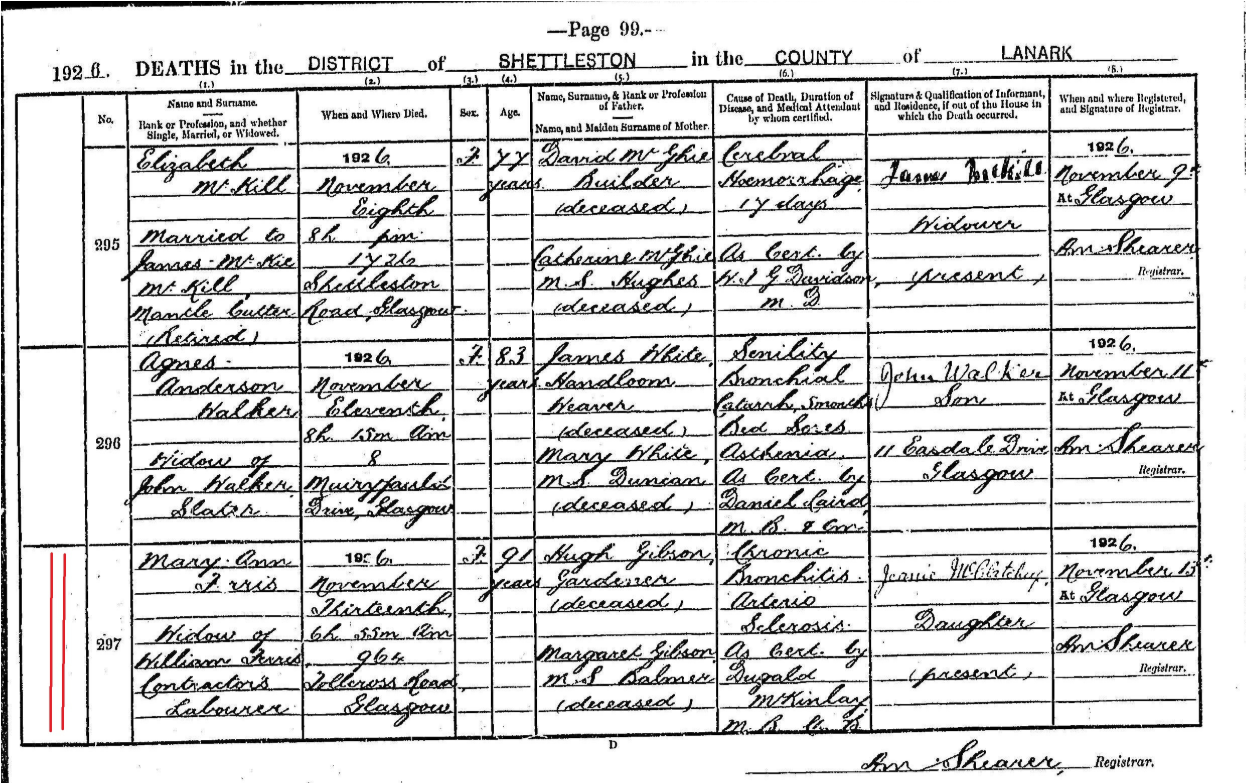 —Page 99.-
1926. DEATHS in the DISTRICT of SHETTLESTON in the COUNTY of LANARK
(1.) (2.) (3.) (4.) (5.) (6.) (7.) (8.)
No.
Name and Surname.
Rank or Profession, and whether
Single, Married, or Widowed.
When and Where Died.
Sex.
Age.
Name, Surname, & Rank or Profession
of Father.
Name, and Maiden Surname of Mother.
Cause of Death, Duration of
Disease, and Medical Attendant
by whom certified.
Signature & Qualification of Informant,
and Residence, if out of the House in
which the Death occurred.
When and where Registered,
and Signature of Registrar.
295
Elizabeth
McKill
Married to
James McKie
McKill
Mantle Cutter
(Retired)
1926.
November
Eighth
8h pm
1726
Shettleston
Road, Glasgow
F.
77
years.
David McGhie
Builder
(deceased)
Catherine McGhie
M.S. Hughes
(deceased)
Cerebral
Haemorrhage
17 days
As Cert. by
Davidson,
M.D
James McKill
Widower
(present)
1926.
November 9th
At Glasgow
Am Shearer
Registrar.
296
Agnes
Anderson
Walker
Widow of
John Walker
Slater
1926.
November
Eleventh,
8h. 15m Am
8
Drive, Glasgow
F.
83
years
James White,
Handloom
Weaver
(deceased)
Mary White,
M.S. Duncan
(deceased)
Senility
Bronchial
Catarrh, months
Bed Sores
Asthenia.
As Cert. by
Daniel Laird,
M.B. & Cm.
John Walker
Son
11 Easdale Drive
Glasgow
1926.
November 11th
At Glasgow
Am Shearer
Registrar.
297
Mary Ann
Ferris
Widow of
William Ferris
Contractor's
Labourer
1926.
November
Thirteenth,
6h 55m Am
964
Tollcross Road,
Glasgow
F.
91
years
Hugh Gibson,
Gardener
(deceased)
Margaret Gibson,
M.S Balmer
(deceased)
Chronic
Bronchitis.
Arterio
Sclerosis.
As Cert. by
Dugald
McKinlay
M.B.
Jeanie
Daughter
(present)
1926.
November 13th
At Glasgow
Am Shearer
Registrar.
D
Am Shearer, Registrar.